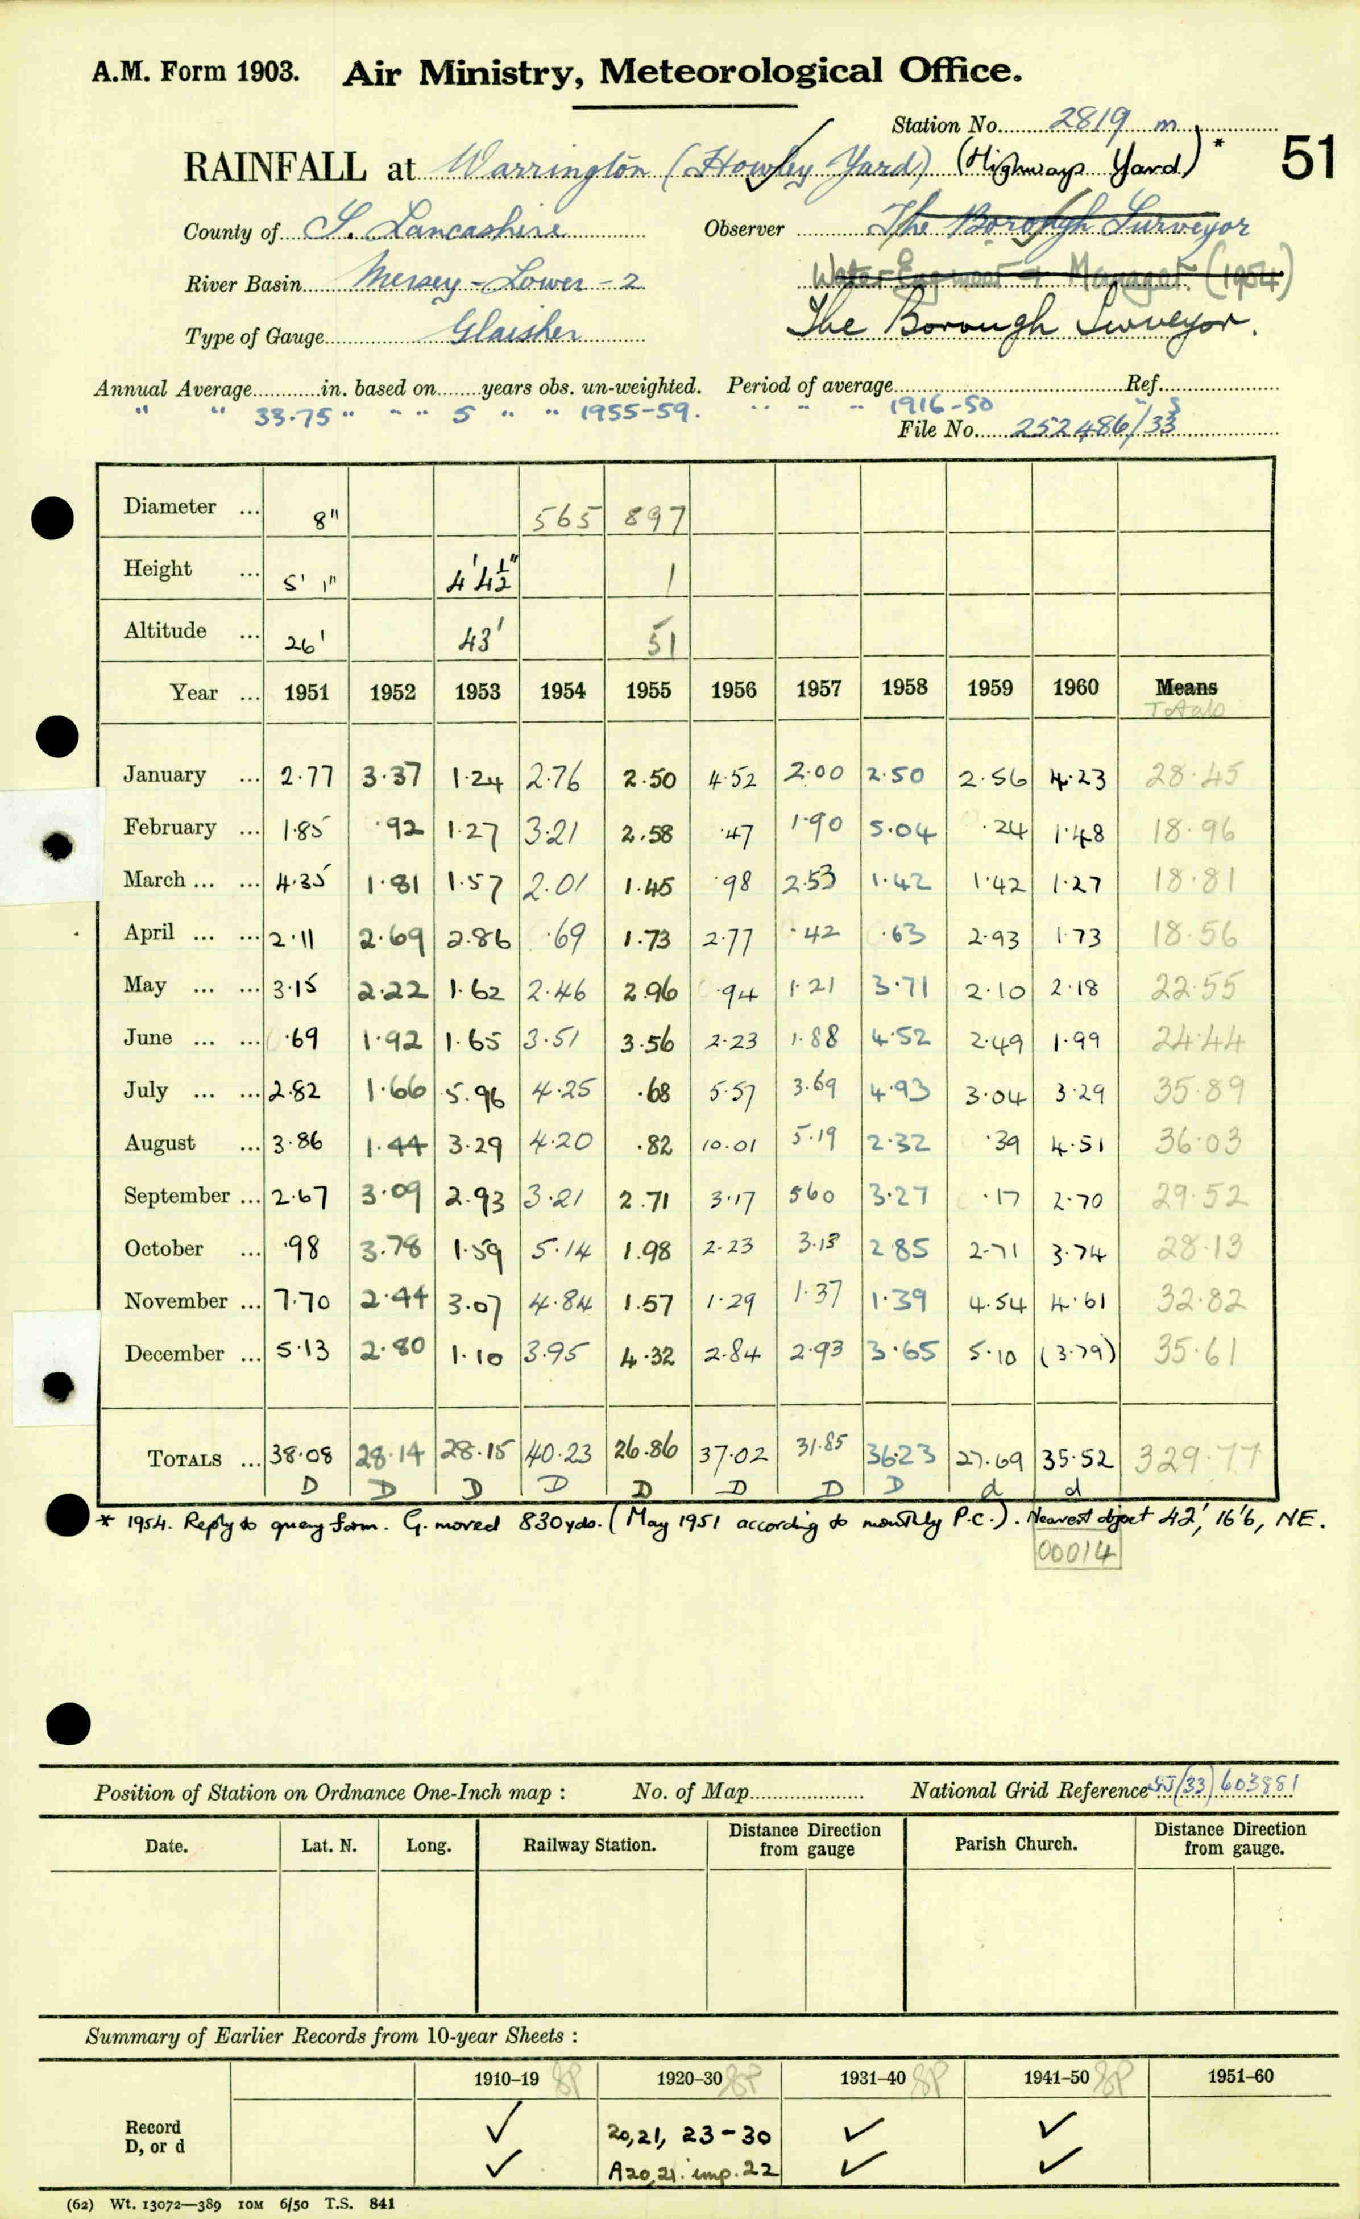 A.M. Form 1903. Air Ministry, Meteorological Office.
Station No. 2819 m
51
RAINFALL at Warrington (Howley Yard) (Highways Yard) *
County of S. Lancashire Observer The Borough Surveyor
River Basin Mersey - Lower - 2 Water Eng & Manager (1954)
Type of Gauge Glaisher The Borough Surveyor.
Annual Average in. based on years obs. un-weighted. Period of average Ref.
" " 33.75 " " " 5 " " 1955-59. " " " 1916-50 " 3
File No. 252486/33
Diameter ... 8" 565 897
Height ... 5' 1" 4' 4½" 1
Altitude ... 26' 43' 51
Year ... 1951 1952 1953 1954 1955 1956 1957 1958 1959 1960 Means
Totals
January ... 2.77 3.37 1.24 2.76 2.50 4.52 2.00 2.50 2.56 4.23 28.45
February ... 1.85 .92 1.27 3.21 2.58 .47 1.90 5.04 .24 1.48 18.96
March ... ... 4.35 1.81 1.57 2.01 1.45 .98 2.53 1.42 1.42 1.27 18.81
April ... ... 2.11 2.69 2.86 .69 1.73 2.77 .42 .63 2.93 1.73 18.56
May ... ... 3.15 2.22 1.62 2.46 2.96 .94 1.21 3.71 2.10 2.18 22.55
June ... ... .69 1.92 1.65 3.51 3.56 2.23 1.88 4.52 2.49 1.99 24.44
July ... ... 2.82 1.66 5.96 4.25 .68 5.57 3.69 4.93 3.04 3.29 35.89
August ... 3.86 1.44 3.29 4.20 .82 10.01 5.19 2.32 .39 4.51 36.03
September ... 2.67 3.09 2.93 3.21 2.71 3.17 5 60 3.27 .17 2.70 29.52
October ... .98 3.78 1.59 5.14 1.98 2.23 3.13 2.85 2.71 3.74 28.13
November ... 7.70 2.44 3.07 4.84 1.57 1.29 1.37 1.39 4.54 4.61 32.82
December ... 5.13 2.80 1.10 3.95 4.32 2.84 2.93 3.65 5.10 (3.79) 35.61
TOTALS ... 38.08 28.14 28.15 40.23 26.86 37.02 31.85 36.23 27.69 35.52 329.77
D D D D D D D D d d
* 1954. Reply to query form. G. moved 830yds. (May 1951 according to monthly P.C.). Nearest object 42', 16'6, NE.
00014
Position of Station on Ordnance One-Inch map : No. of Map National Grid Reference SJ(33) 603881
Date. Lat. N. Long. Railway Station. Distance Direction from gauge Parish Church. Distance Direction from gauge.
Summary of Earlier Records from 10-year Sheets :
1910-19 1920-30 1931-40 1941-50 1951-60
Record ✓ 20,21, 23-30 ✓ ✓
D, or d ✓ A20,21. imp. 22 ✓ ✓
(62) Wt. 13072—389 10M 6/50 T.S. 841